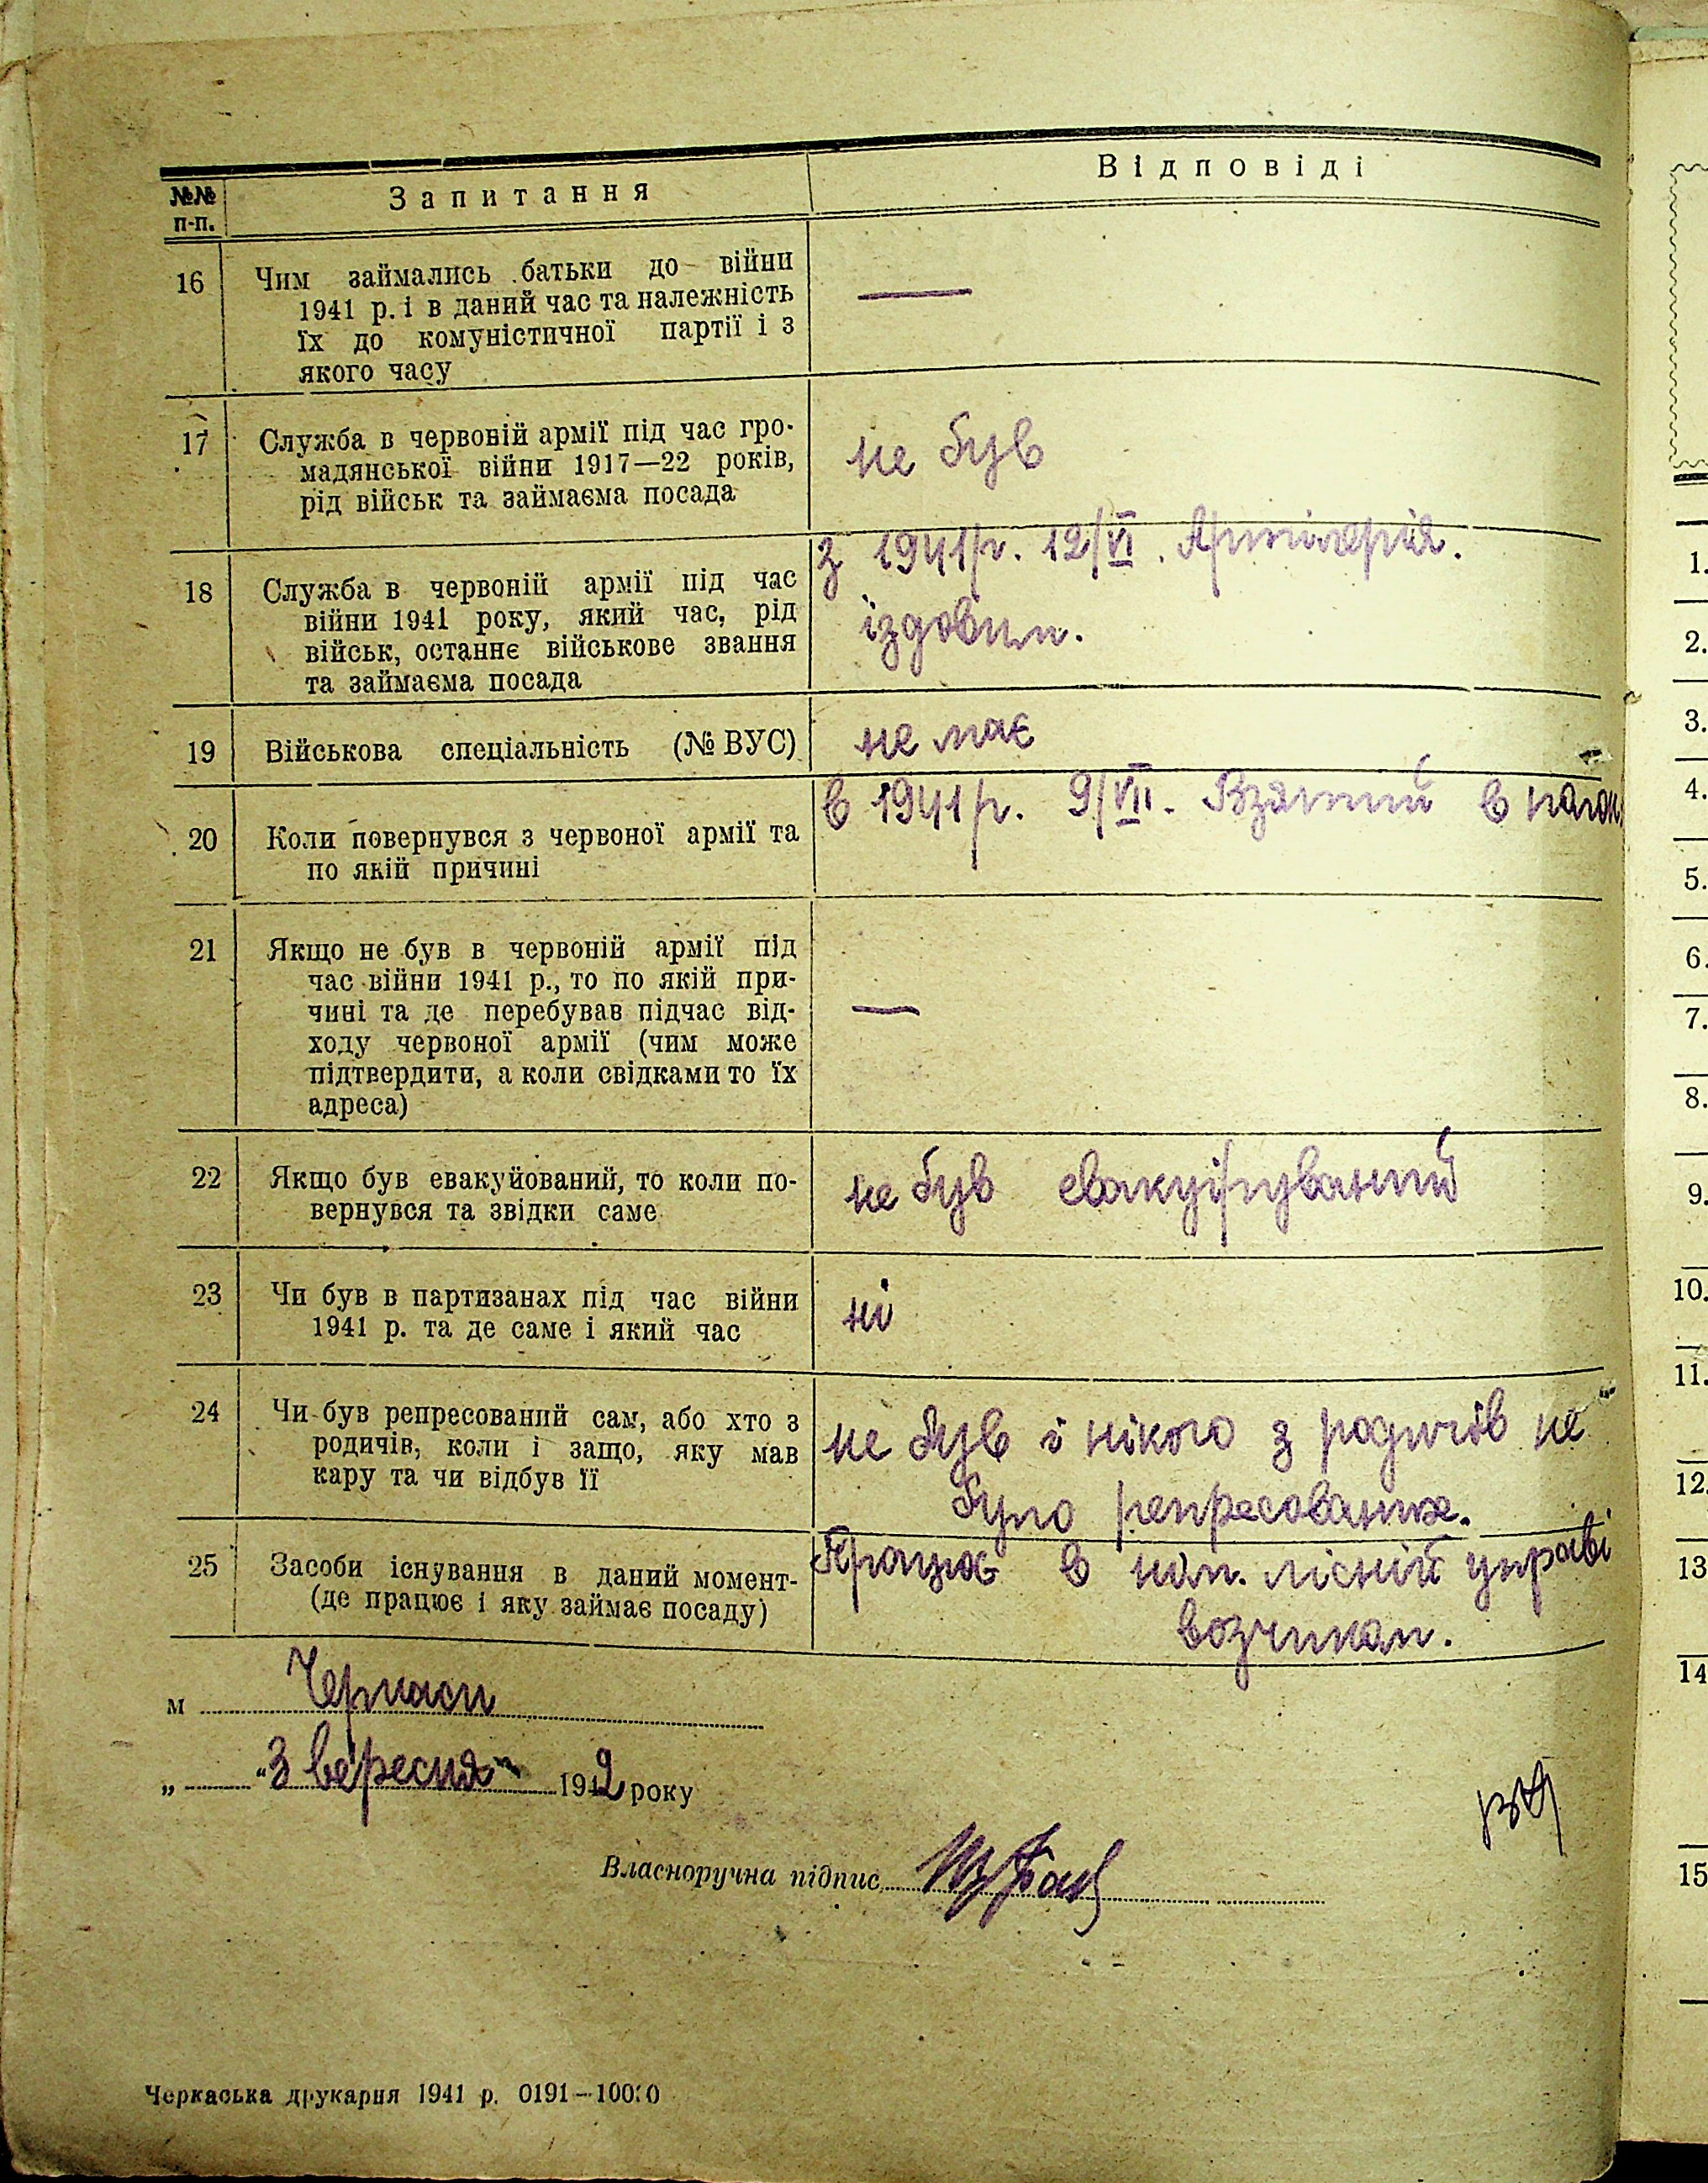 №№ п-п.
Запитання
Відповіді
16
Чим займались батьки до війни
1941 р. і в даний час та належність
їх до комуністичної партії і з
якого часу
—
17
Служба в червоній армії під час гро-
мадянської війни 1917—22 років,
рід військ та займаєма посада
не був
18
Служба в червоній армії під час
війни 1941 року, який час, рід
військ, останнє військове звання
та займаєма посада
з 1941 р. 12/VI. Артілерія.
їздовим.
19
Військова спеціальність (№ ВУС)
не має
20
Коли повернувся з червоної армії та
по якій причині
в 1941 р. 9/VII. Взятий в
21
Якщо не був в червоній армії під
час війни 1941 р., то по якій при-
чині та де перебував підчас від-
ходу червоної армії (чим може
підтвердити, а коли свідками то їх
адреса)
—
22
Якщо був евакуйований, то коли по-
вернувся та звідки саме
не був евакуіруваний
23
Чи був в партизанах під час війни
1941 р. та де саме і який час
ні
24
Чи був репресований сам, або хто з
родичів, коли і защо, яку мав
кару та чи відбув її
не був і нікого з родичів не
було репресоване.
25
Засоби існування в даний момент-
(де працює і яку займає посаду)
Працює в лісній управі
возчиком.
м Черкаси
„ “ 3 вересня 1942 року
Власноручна підпис
Черкаська друкарня 1941 р. 0191—10000
1.
2.
3.
4.
5.
6.
7.
8.
9.
10.
11.
12.
13
14
15